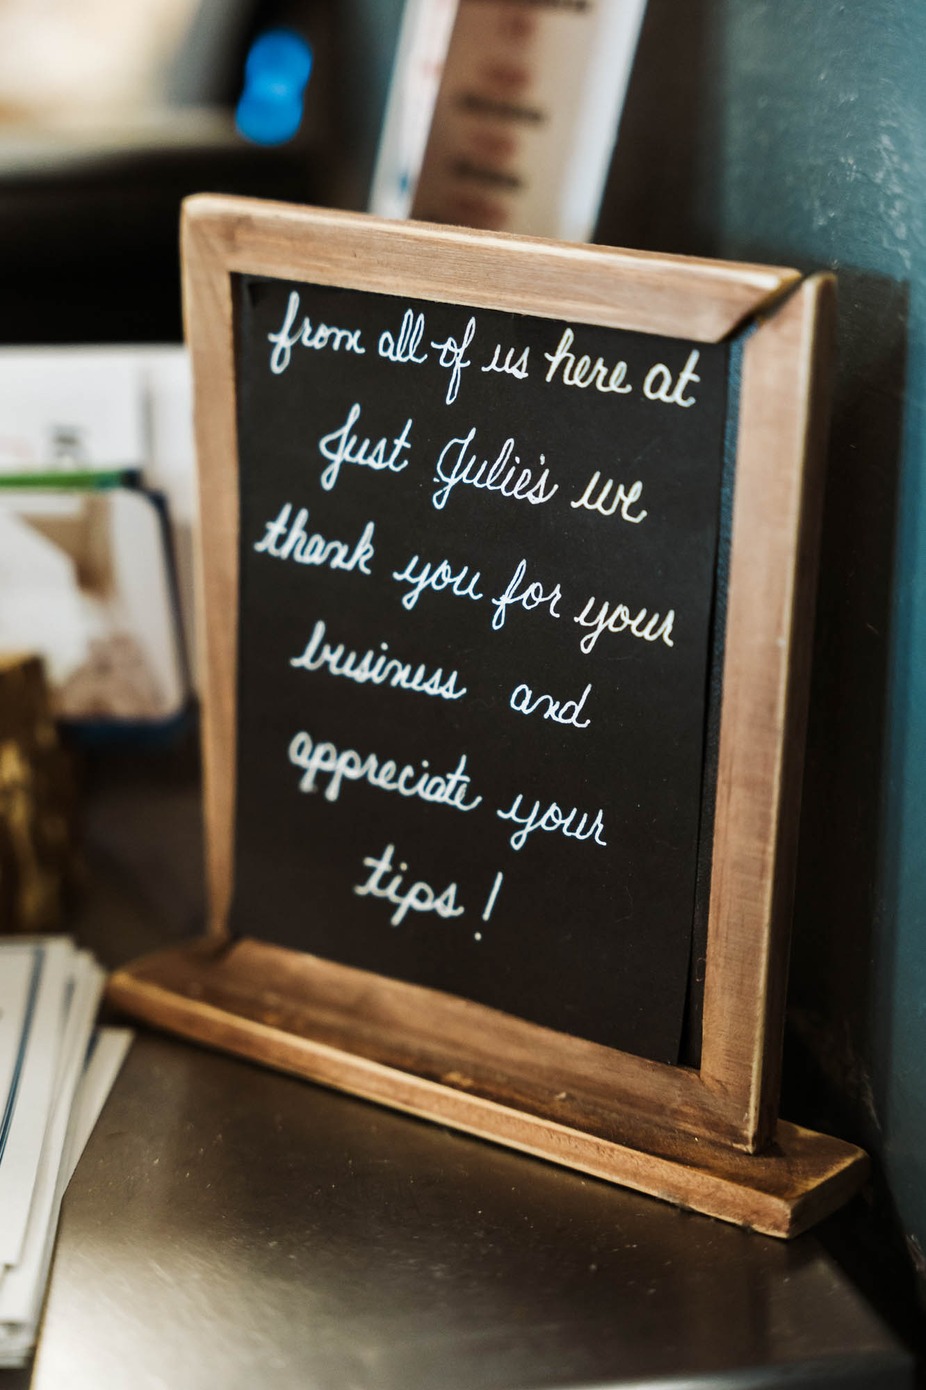 from all of us here at
Just Julie's we
thank you for your
business and
appreciate your
tips!